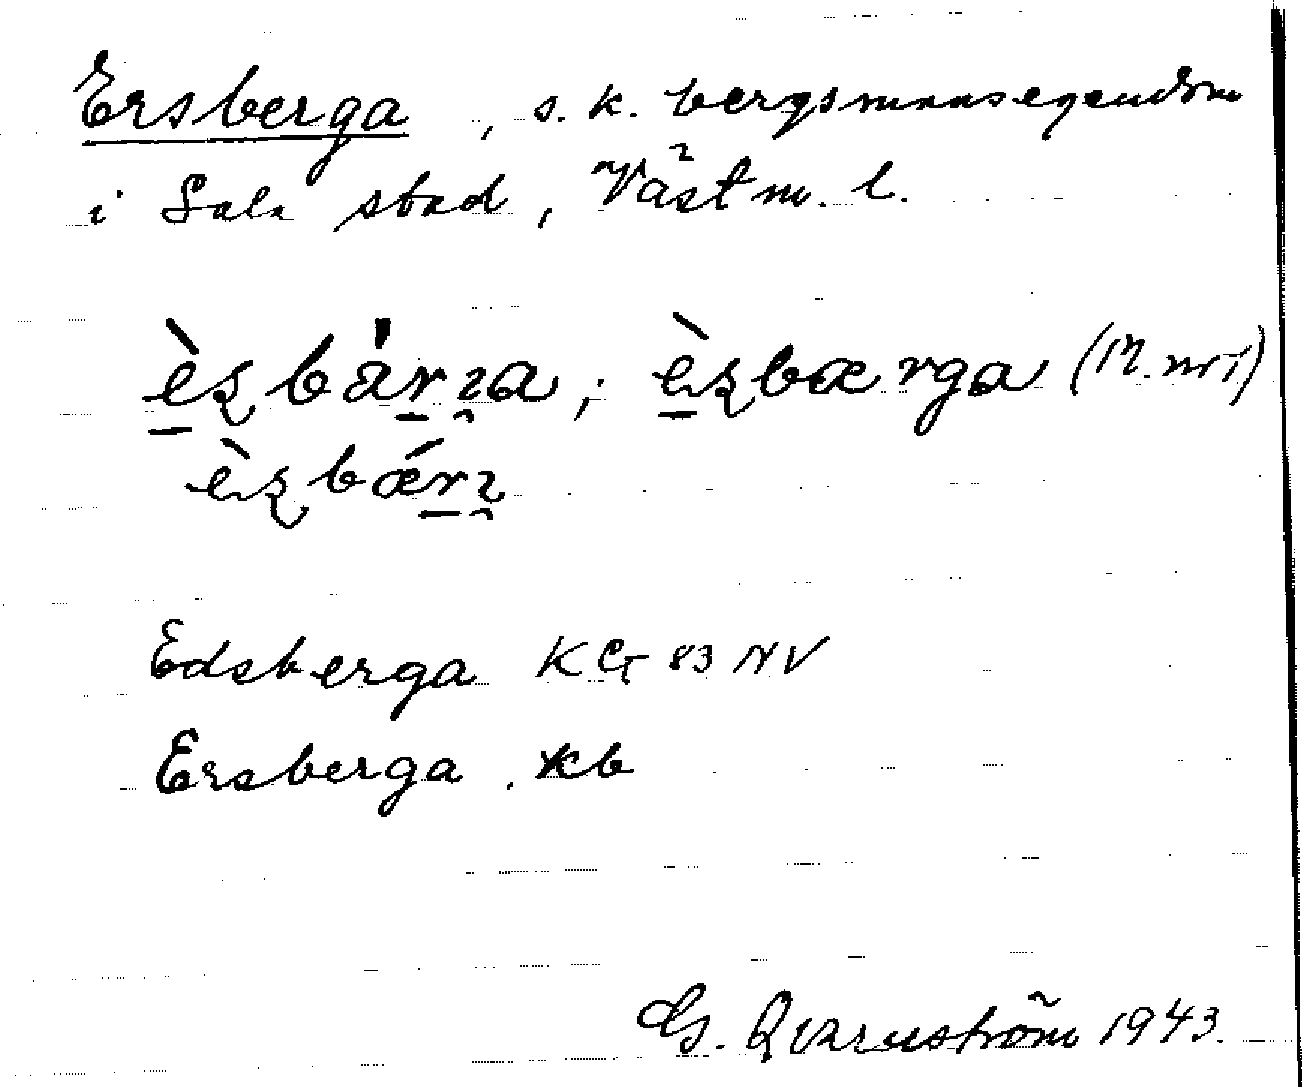 Ersberga, s. k. bergsmansegendom
i Sala stad, Västm. l.
èʂbárɿa; èʂbærga (M. nr 1)
èʂbǽrɿ
Edsberga KG 83 NV
Ersberga. kb
G. Qvarnström 1943.